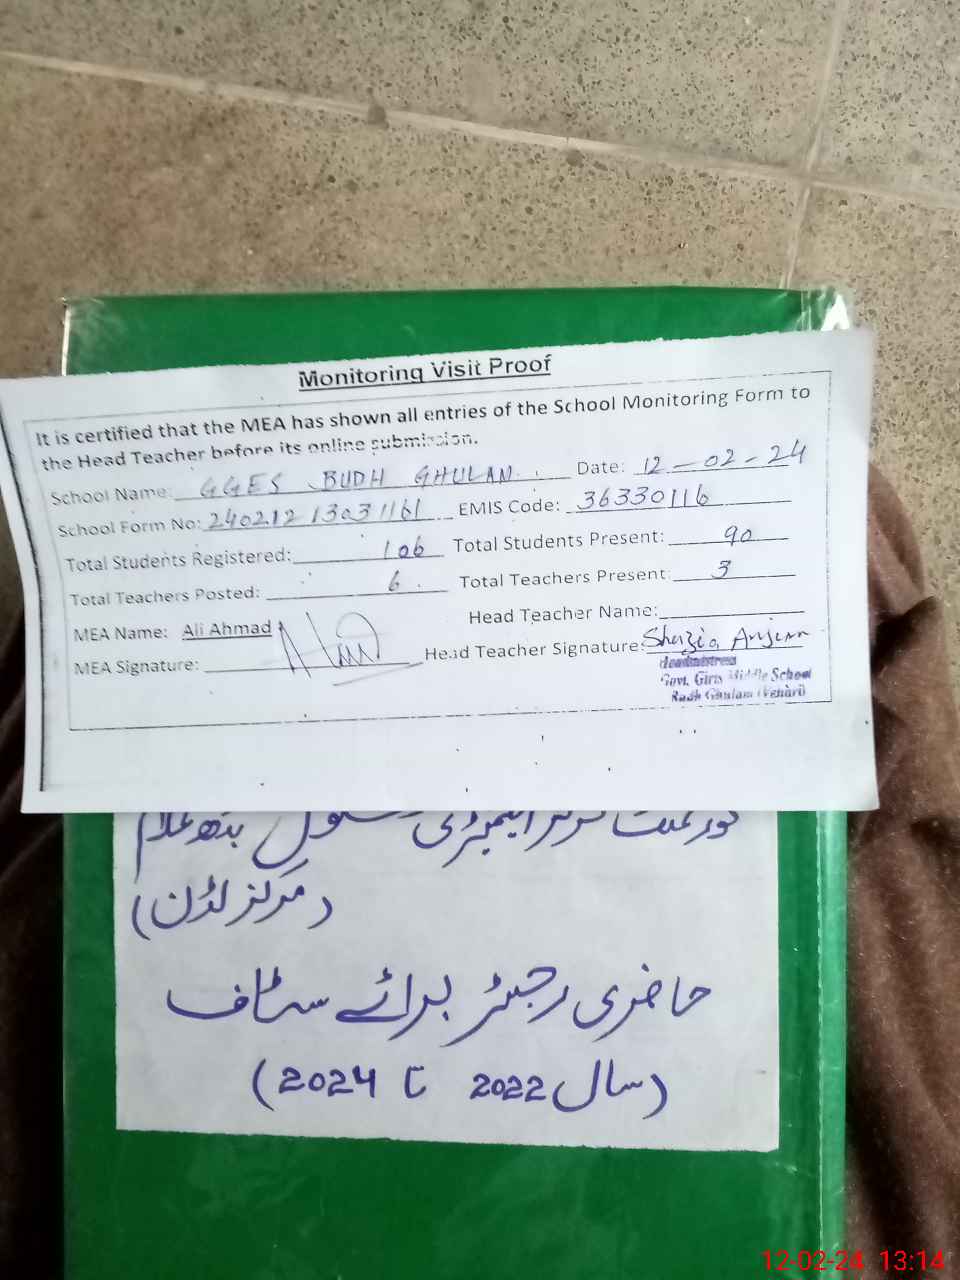 Monitoring Visit Proof
It is certified that the MEA has shown all entries of the School Monitoring Form to
the Head Teacher before its online submission.
School Name: GGES BUDH GHULAN Date: 12-02-24
School Form No: 24021213031161 EMIS Code: 36330116
Total Students Registered: 106 Total Students Present: 90
Total Teachers Posted: 6 Total Teachers Present: 3
MEA Name: Ali Ahmad Head Teacher Name:
MEA Signature: Head Teacher Signature: Shazia Anjum
Headmistress
Govt. Girls Middle School
Budh Ghulam (Vehari)
گورنمنٹ گرلز ایلیمنٹری سکول بدھ غلام
(مرکز لڈن)
حاضری رجسٹر برائے سٹاف
(سال 2022 تا 2024)
12-02-24 13:14